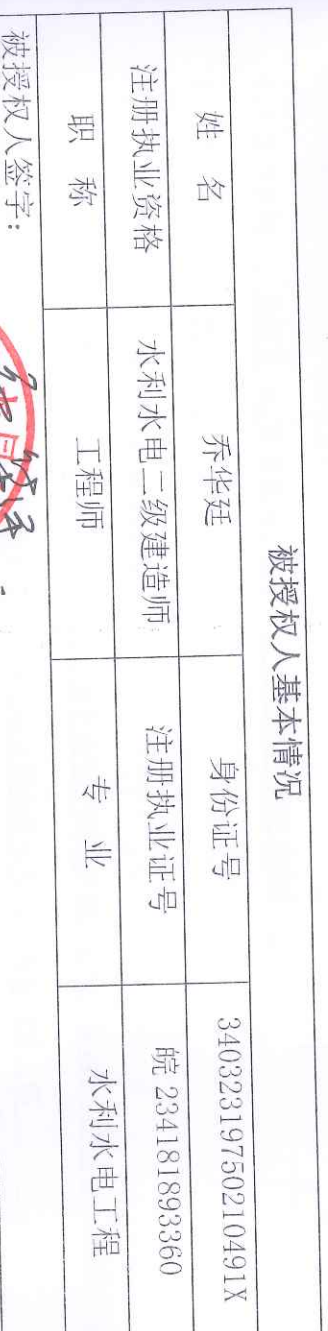 被授权人基本情况
姓 名 乔华廷 身份证号 34032319750210491X
注册执业资格 水利水电二级建造师 注册执业证号 皖 234181893360
职 称 工程师 专 业 水利水电工程
被授权人签字: